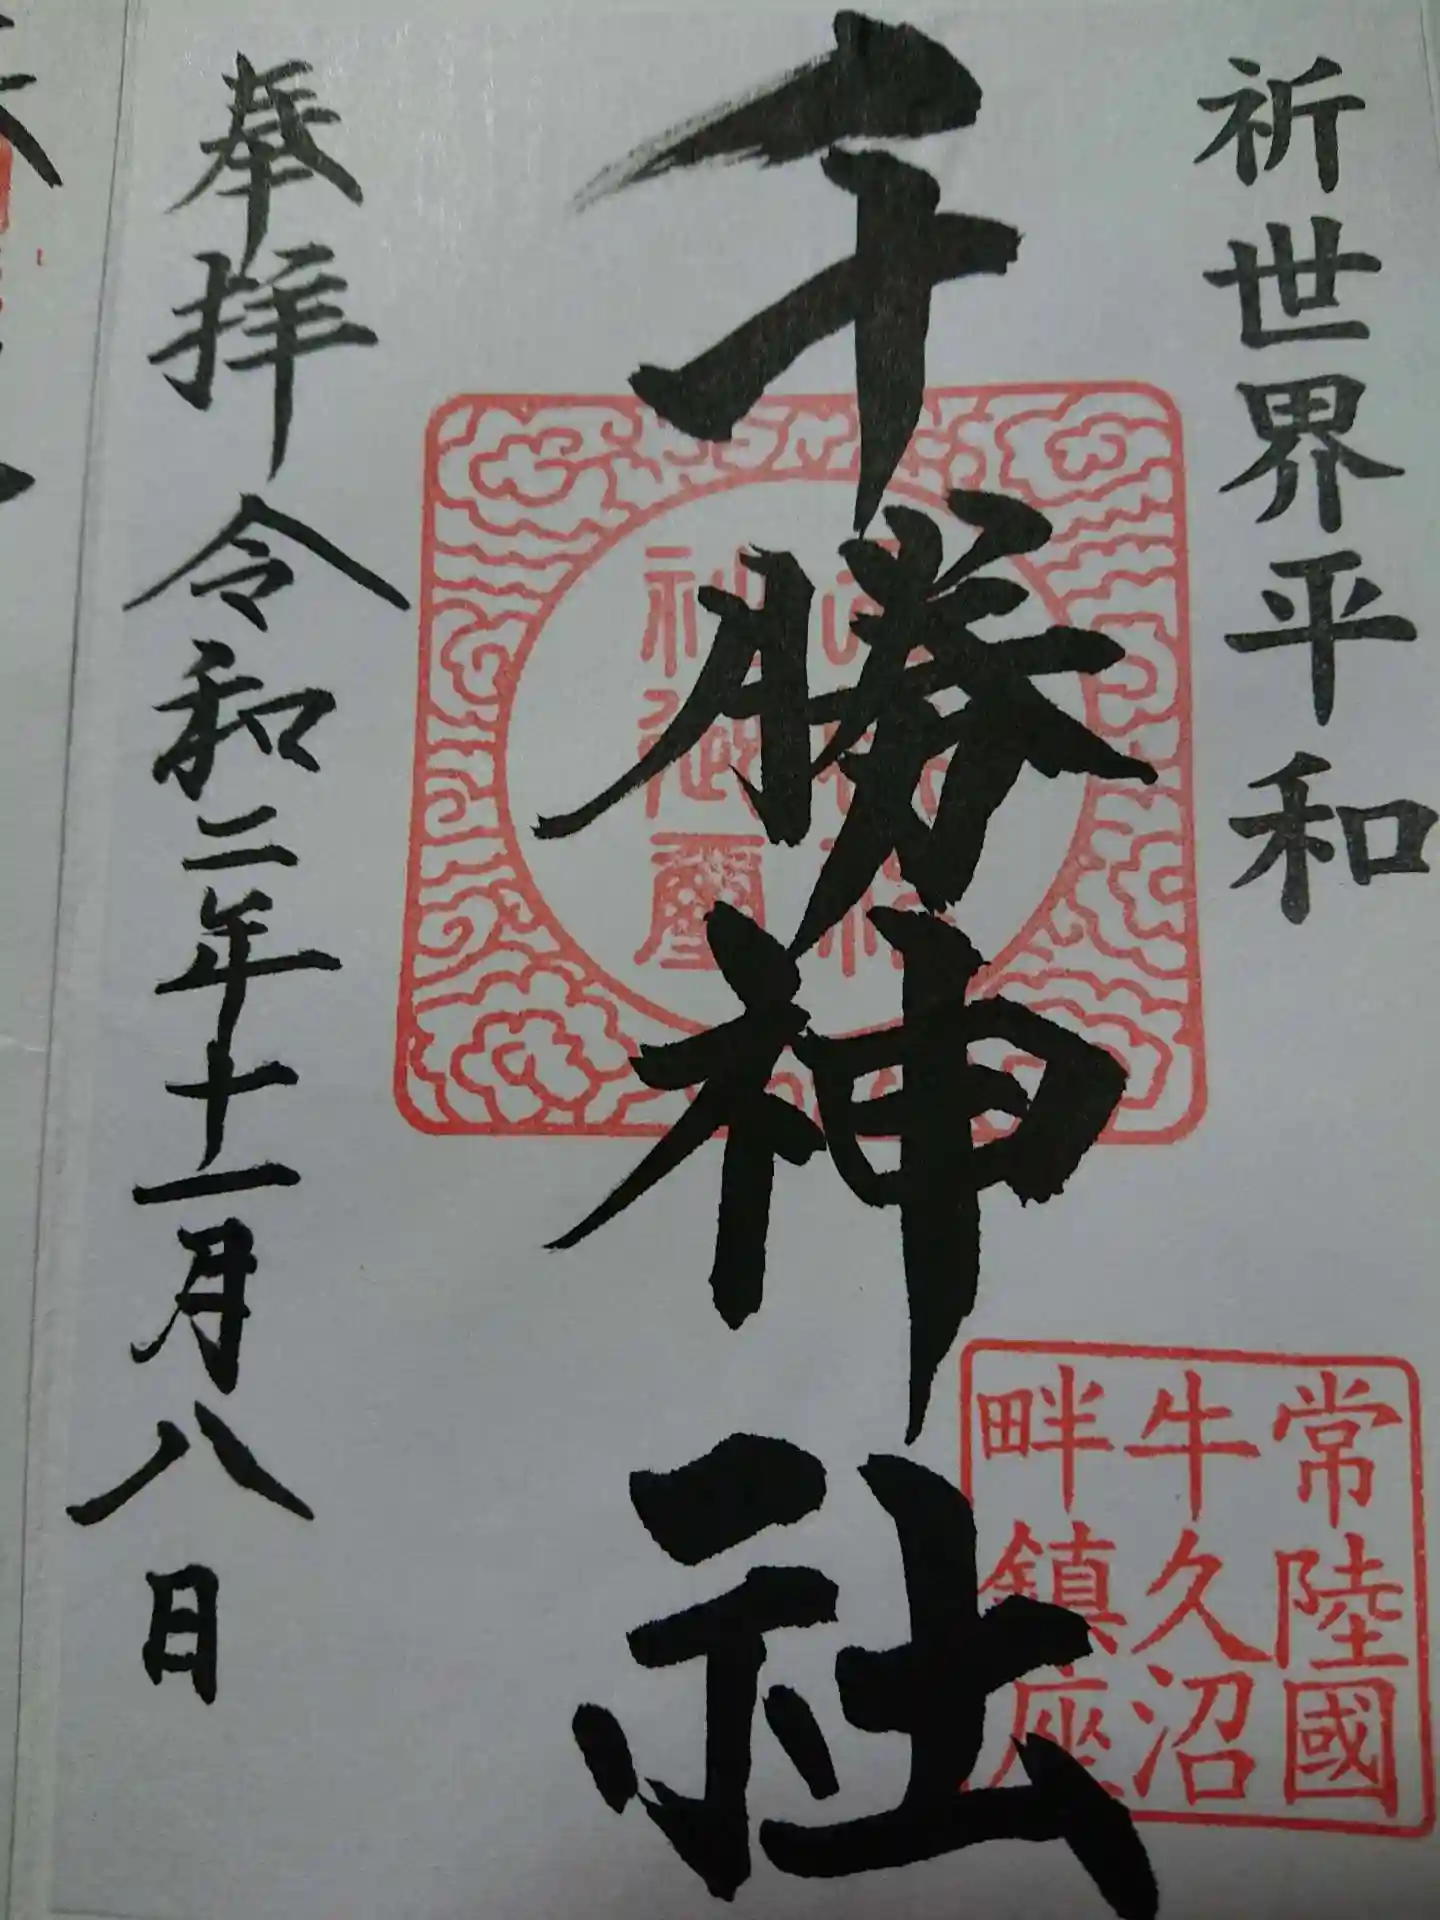 祈世界平和
千勝神社
常陸國
牛久沼
畔鎮座
奉拝 令和二年十一月八日